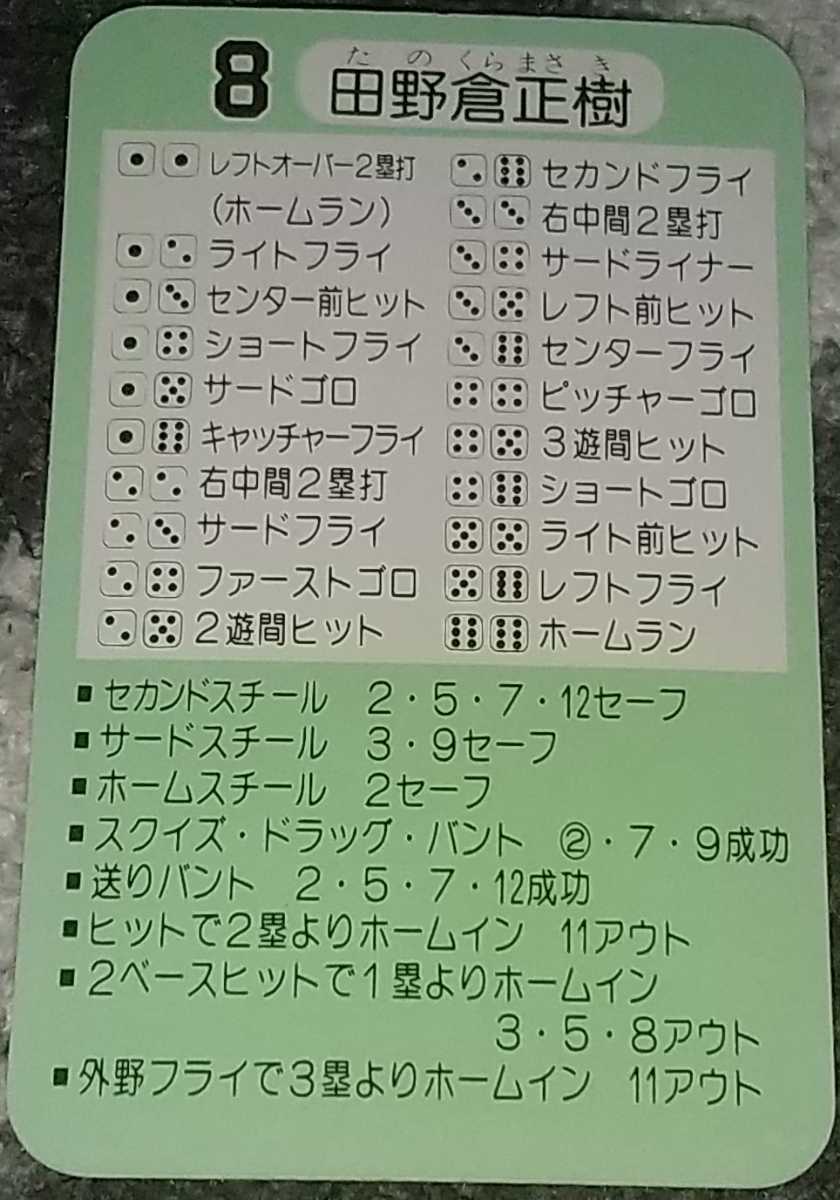 たのくらまさき
8 田野倉正樹
レフトオーバー2塁打
(ホームラン)
ライトフライ
センター前ヒット
ショートフライ
サードゴロ
キャッチャーフライ
右中間2塁打
サードフライ
ファーストゴロ
2遊間ヒット
セカンドフライ
右中間2塁打
サードライナー
レフト前ヒット
センターフライ
ピッチャーゴロ
3遊間ヒット
ショートゴロ
ライト前ヒット
レフトフライ
ホームラン
■セカンドスチール 2・5・7・12セーフ
■サードスチール 3・9セーフ
■ホームスチール 2セーフ
■スクイズ・ドラッグ・バント ②・7・9成功
■送りバント 2・5・7・12成功
■ヒットで2塁よりホームイン 11アウト
■2ベースヒットで1塁よりホームイン
3・5・8アウト
■外野フライで3塁よりホームイン 11アウト